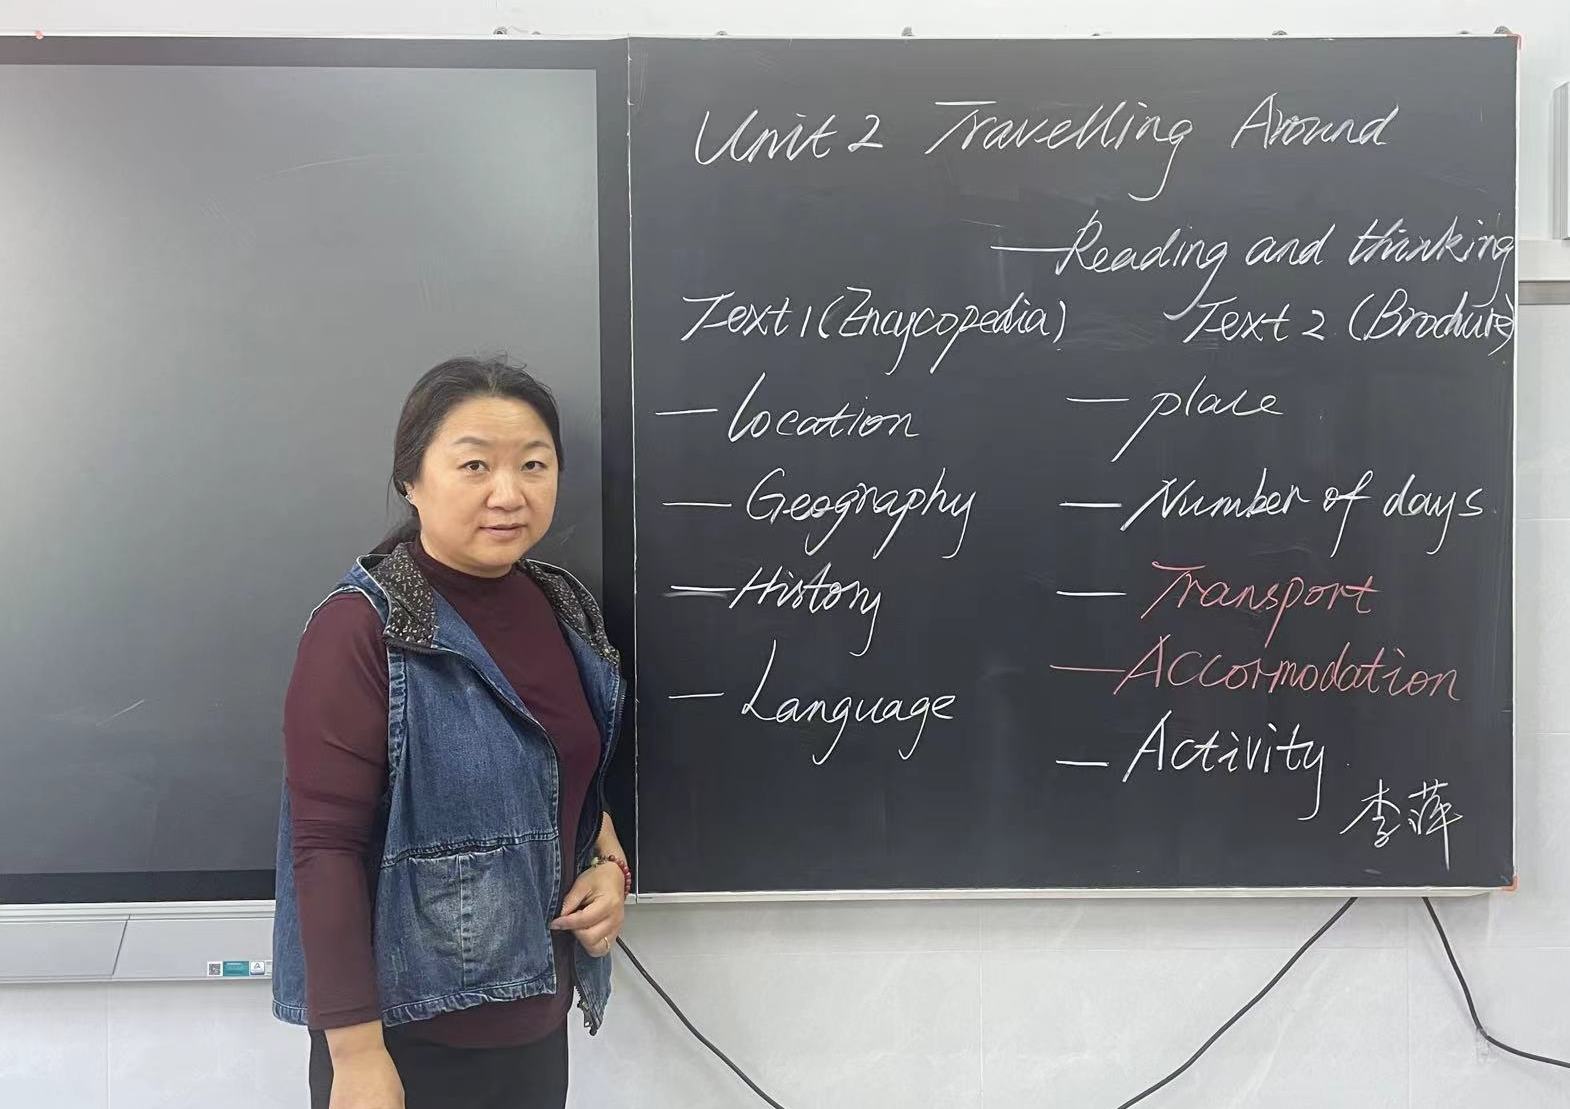 Unit 2 Travelling Around
—Reading and thinking
Text 1 (Encycopedia)
— location
— Geography
— History
— Language
Text 2 (Brochure)
— place
— Number of days
— Transport
— Accormodation
— Activity
李萍